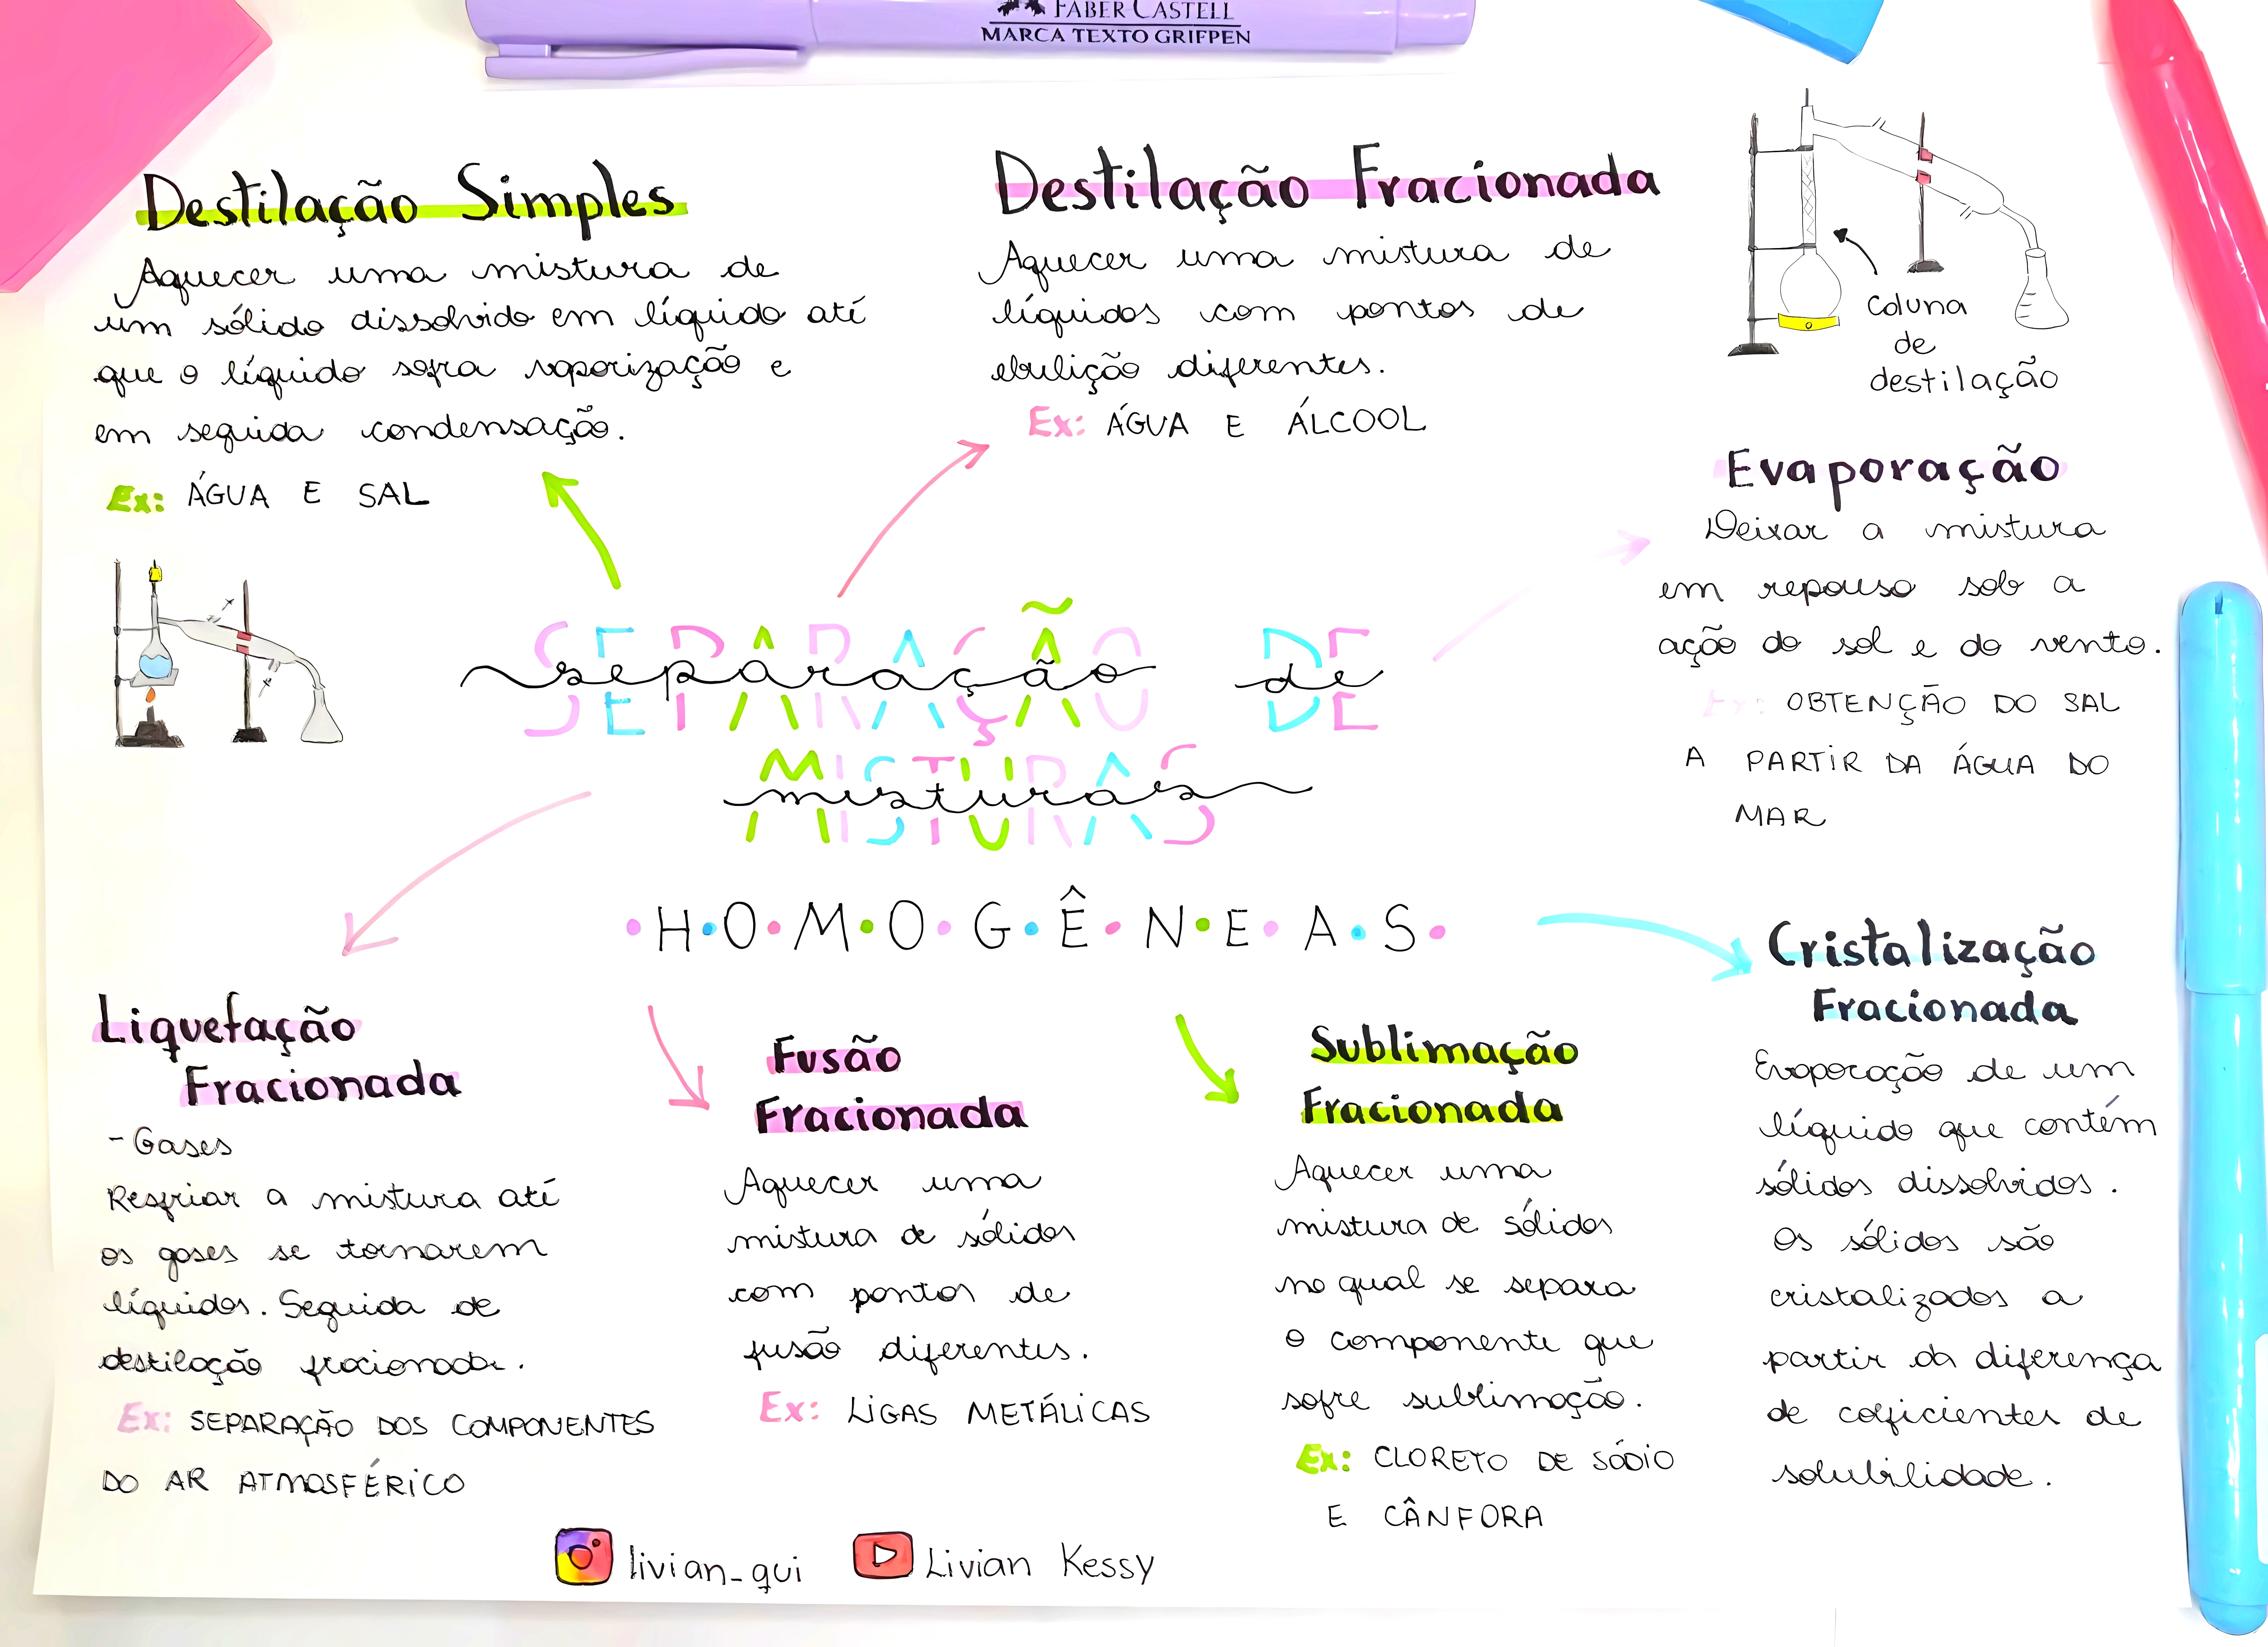 FABER CASTELL
MARCA TEXTO GRIFPEN
Destilação Simples
Aquecer uma mistura de
um sólido dissolvido em líquido até
que o líquido sofra vaporização e
em seguida condensação.
Ex: ÁGUA E SAL
Destilação Fracionada
Aquecer uma mistura de
líquidos com pontos de
ebulição diferentes.
Ex: ÁGUA E ÁLCOOL
coluna
de
destilação
Evaporação
Deixar a mistura
em repouso sob a
ação do sol e do vento.
Ex: OBTENÇÃO DO SAL
A PARTIR DA ÁGUA DO
MAR
SEPARAÇÃO DE
separação de
MISTURAS
misturas
H.O.M.O.G.Ê.N.E.A.S.
Liquefação
Fracionada
- Gases
Resfriar a mistura até
os gases se tornarem
líquidos. Seguida de
destilação fracionada.
Ex: SEPARAÇÃO DOS COMPONENTES
DO AR ATMOSFÉRICO
Fusão
Fracionada
Aquecer uma
mistura de sólidos
com pontos de
fusão diferentes.
Ex: LIGAS METÁLICAS
Sublimação
Fracionada
Aquecer uma
mistura de sólidos
no qual se separa
o componente que
sofre sublimação.
Ex: CLORETO DE SÓDIO
E CÂNFORA
Cristalização
Fracionada
Evaporação de um
líquido que contém
sólidos dissolvidos.
Os sólidos são
cristalizados a
partir da diferença
de coeficientes de
solubilidade.
livian_qui
Livian Kessy